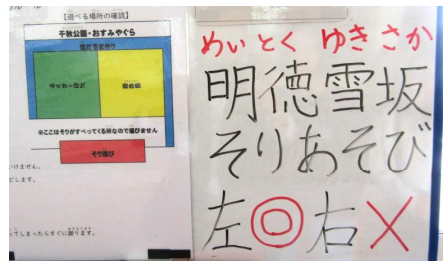 【遊べる場所の確認】
千秋公園・おすみやぐら
サッカーなど
雪合戦
※ここはそりがすべってくる所なので遊びません
そり遊び
いけません。
どします。
ってしまったらすぐに謝ります。
めいとく ゆきさか
明徳雪坂
そりあそび
左◎右×